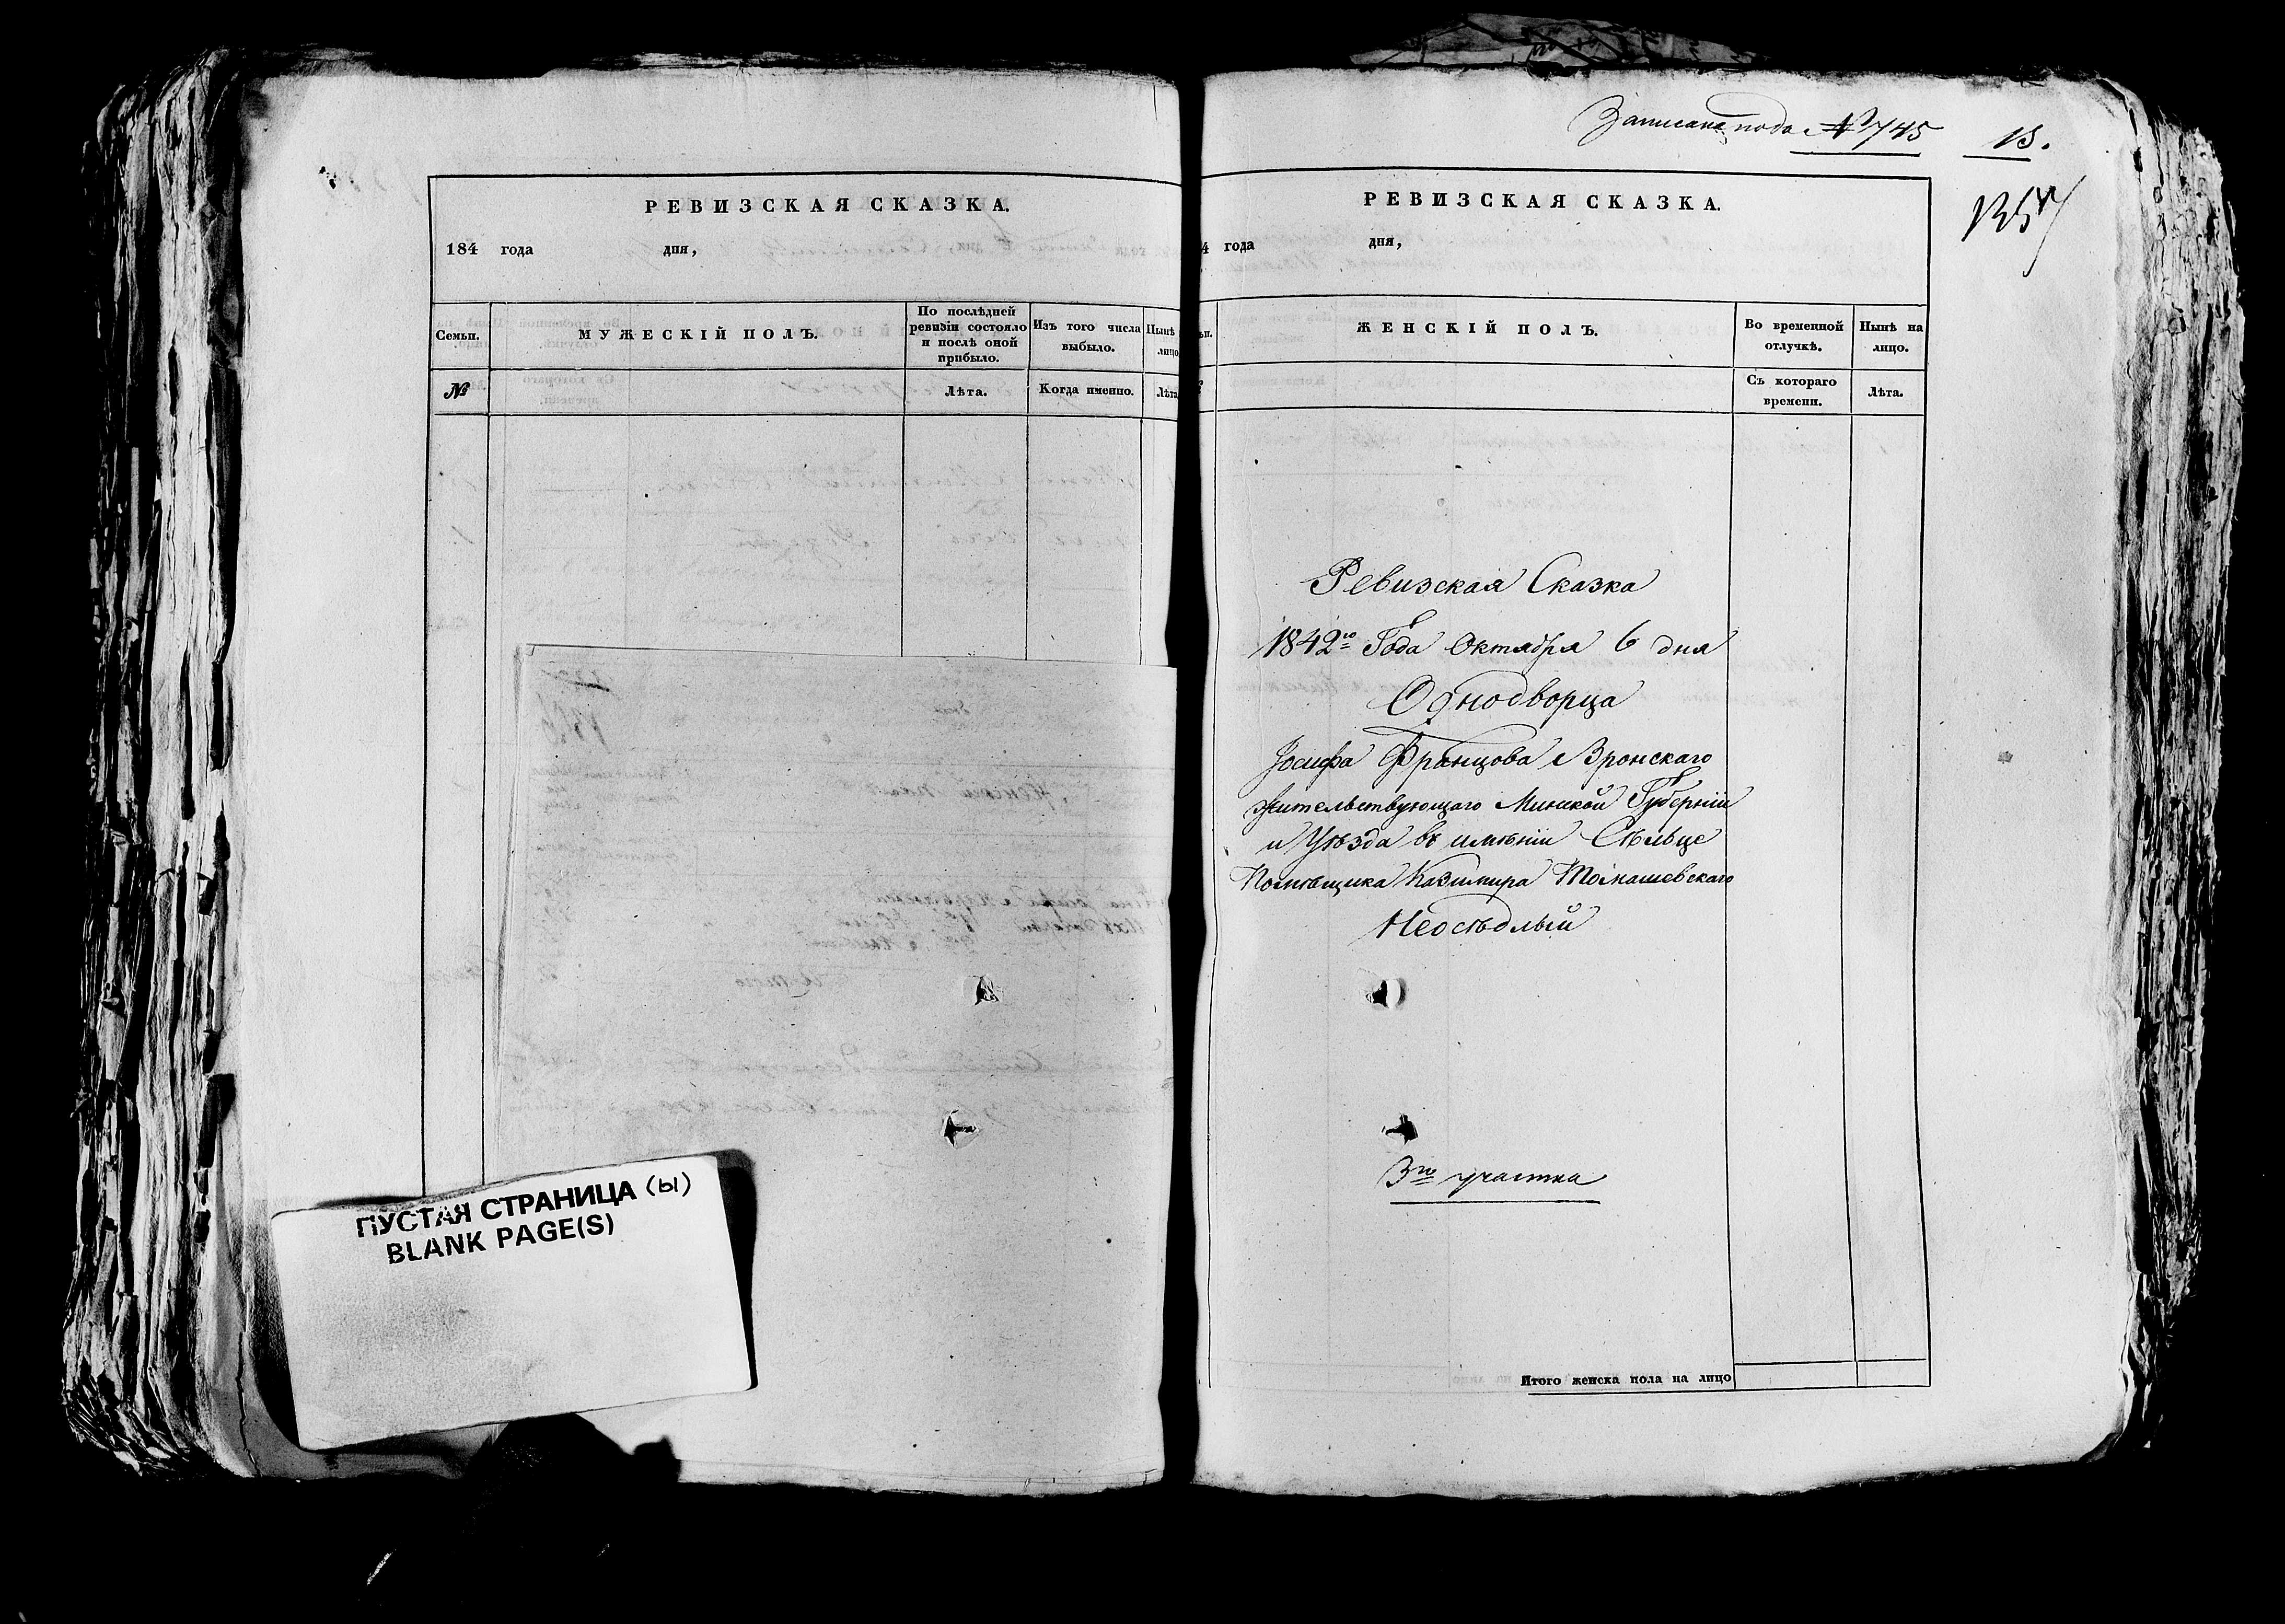 РЕВИЗСКАЯ СКАЗКА.
184 года дня,
Семьи.
МУЖЕСКІЙ ПОЛЪ.
По послѣдней
ревизіи состояло
и послѣ оной
прибыло.
Изъ того числа
выбыло.
Нынѣ
лицо
№
Лѣта.
Когда именно.
Лѣта
ПУСТАЯ СТРАНИЦА (Ы)
BLANK PAGE(S)
Записана подъ №745
13.
1357
РЕВИЗСКАЯ СКАЗКА.
4 года дня,
ЖЕНСКІЙ ПОЛЪ.
Во временной
отлучкѣ.
Нынѣ на
лицо.
Съ котораго
времени.
Лѣта.
Ревизская Сказка
1842го Года Октября 6 дня
Однодворца
Іосифа Францова Вронскаго
жительствующаго Минской Губерніи
и Уѣзда въ имѣніи Сѣльце
Помѣщика Казимира Томашевскаго
Неосѣдлый
3го участка
Итого женска пола на лицо